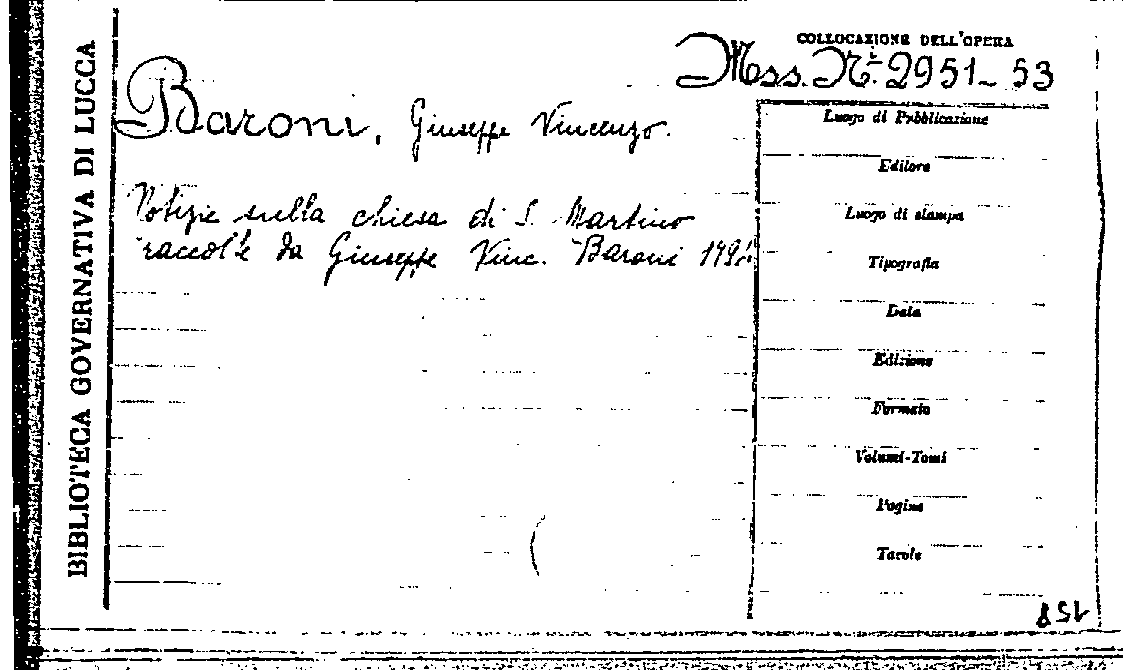 BIBLIOTECA GOVERNATIVA DI LUCCA
COLLOCAZIONE DELL'OPERA
Mss. N.i 2951-53
Baroni, Giuseppe Vincenzo.
Notizie sulla chiesa di S. Martino
raccolte da Giuseppe Vinc. Baroni
Luogo di Pubblicazione
Editore
Luogo di stampa
Tipografia
Data
Edizione
Formato
Volumi-Tomi
Pagine
Tavole